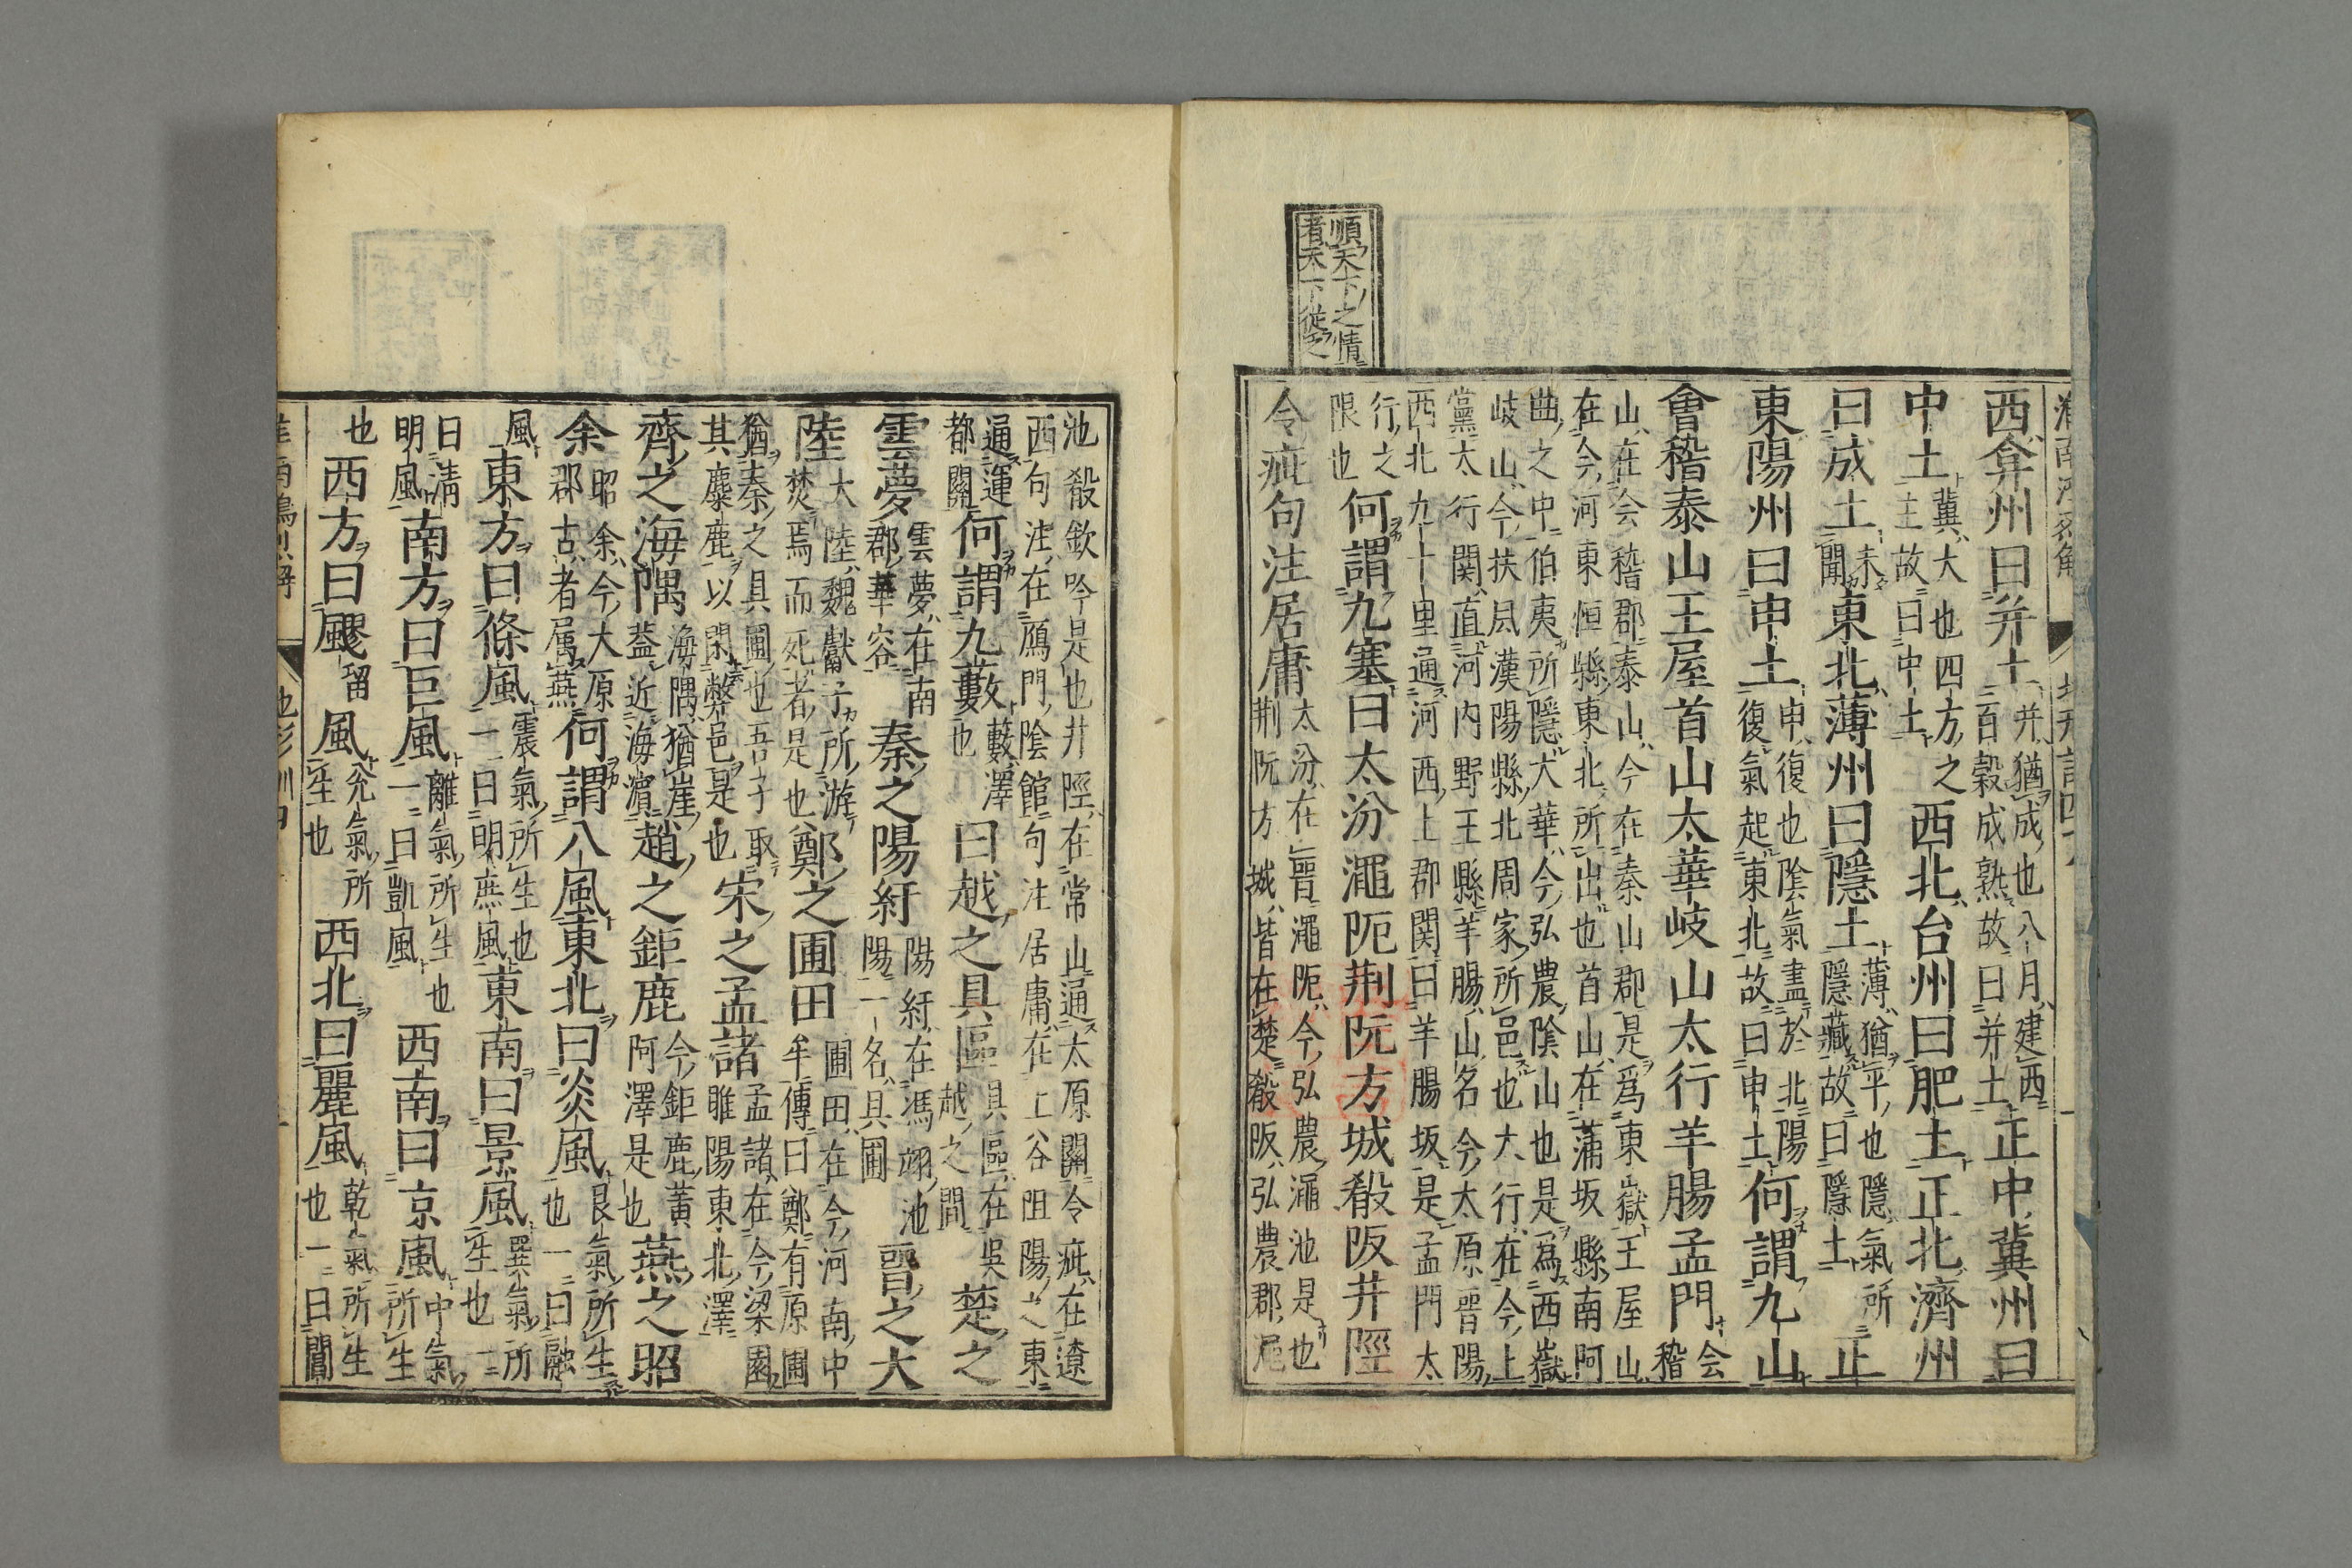 順天下之情
者天下從之
西弇州曰并土并猶成也八月建酉百穀成熟故曰并土正中冀州曰
中土冀大也四方之主故曰中土西北台州曰肥土正北濟州
曰成土未聞東北薄州曰隱土薄猶平也隱氣所隱藏故曰隱土正
東陽州曰申土申復也陰氣盡於北陽復氣起東北故曰申土何謂九山
會稽泰山王屋首山太華岐山太行羊腸孟門会稽
山在会稽郡泰山今在泰山郡是為東嶽王屋山
在今河東恒縣東北所出也首山在蒲坂縣南河
曲之中伯夷所隱大華今弘農陰山也是為西嶽
岐山今扶风漢陽縣北周家所邑也大行在今上
黨太行関直河内野王縣羊腸山名今太原晋陽
西北九十里通河西上郡関曰羊腸坂是孟門太
行之限也何謂九塞曰太汾澠阨荆阮方城殽阪井陘
令疵句注居庸太汾在晋澠阨今弘農澠池是也荆阮方城皆在楚殽阪弘農郡澠
池殽欽吟是也井陘在常山通太原關令疵在遼
西句注在鴈門陰館句注居庸在上谷阻陽之東
通運都關何謂九藪藪澤也曰越之具區具區在吳越之間楚之
雲夢雲夢在南郡華容秦之陽紆陽紆在馮翊池陽一名具圃晋之大
陸大陸魏獻子所游焚焉而死者是也鄭之圃田圃田在今河南中牟傳曰鄭有原圃
猶秦之具圃也吾子取其麋鹿以閑弊邑是也宋之孟諸孟諸在今梁園睢陽東北澤
齊之海隅海隅猶崖蓋近海濵趙之鉅鹿今鉅鹿黄阿澤是也燕之昭
余昭余今大原郡古者属燕何謂八風東北曰炎風艮氣所生也一曰融
風東方曰條風震氣所生也一曰明庶風東南曰景風巽氣所生也一
曰清明風南方曰巨風離氣所生也一曰凱風西南曰京風中氣所生
也西方曰飂留風兌氣所生也西北曰麗風乾氣所生也一曰閶